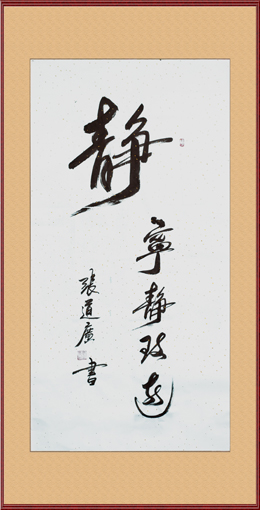 静
寧静致遠
張道廣書